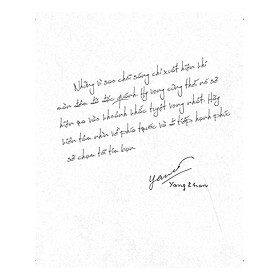 Những vì sao chỉ sáng chỉ xuất hiện khi
màn đêm đã đặc quánh Hy vọng cũng thế nó sẽ
hiện ra vào khoảnh khắc tuyệt vọng nhất Hãy
kiên tâm nhìn về phía trước và đi tiếp hạnh phúc
sẽ chạm tới tim bạn
Yang Shan